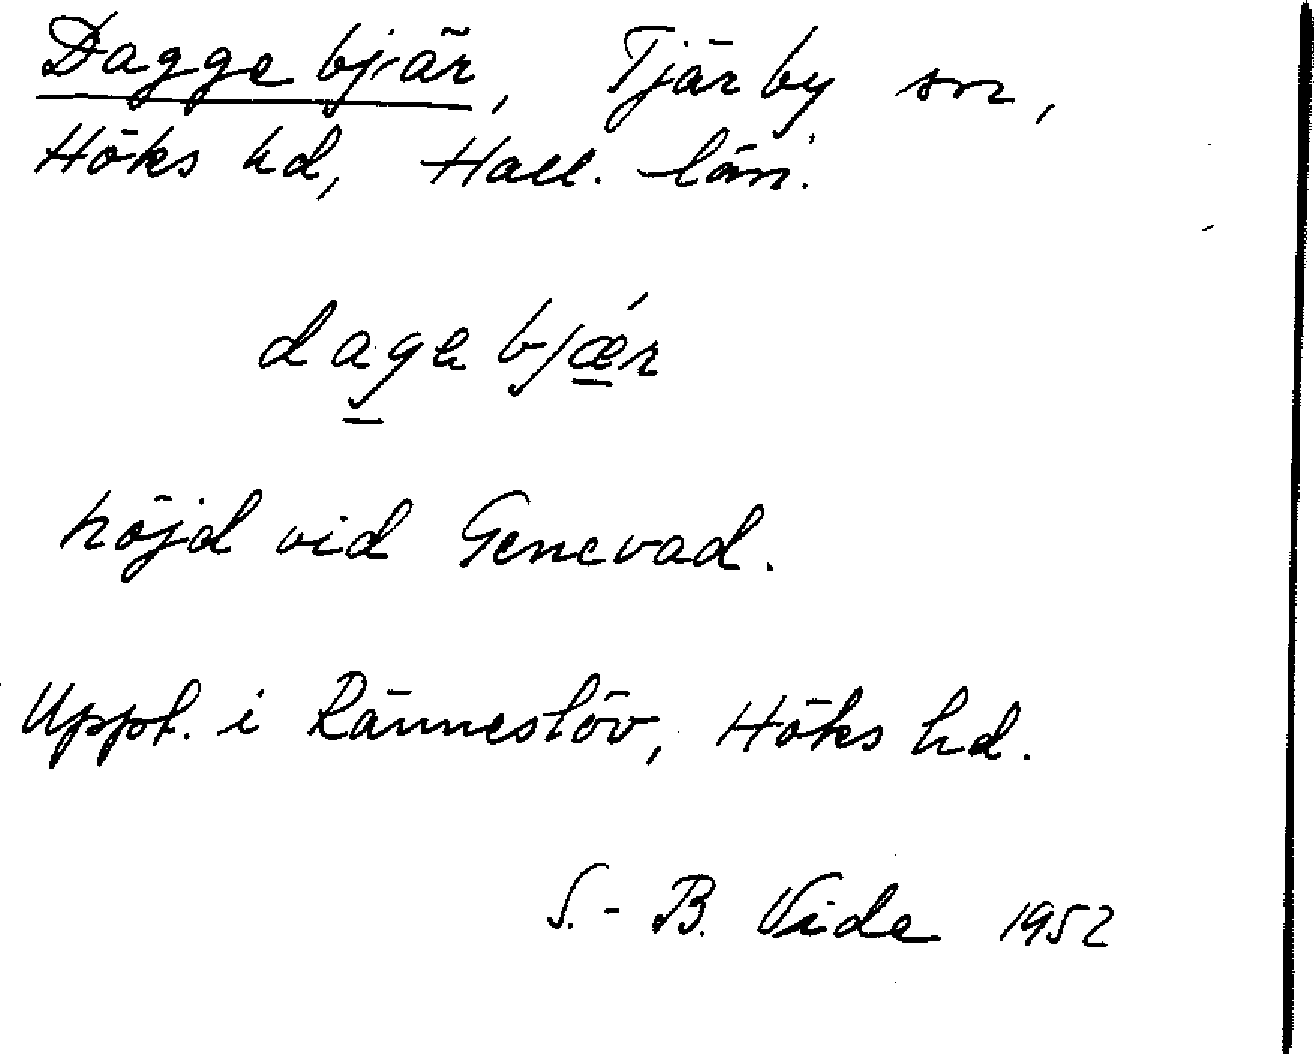 Daggebjär, Tjärby sn,
Höks hd, Hall. län.
dagebjǽr
höjd vid Genevad.
Uppt. i Ränneslöv, Höks hd.
S.-B. Vide 1952